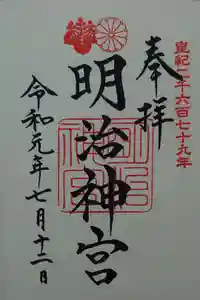 皇紀二千六百七十九年
奉拝
明治神宮
令和元年七月十二日